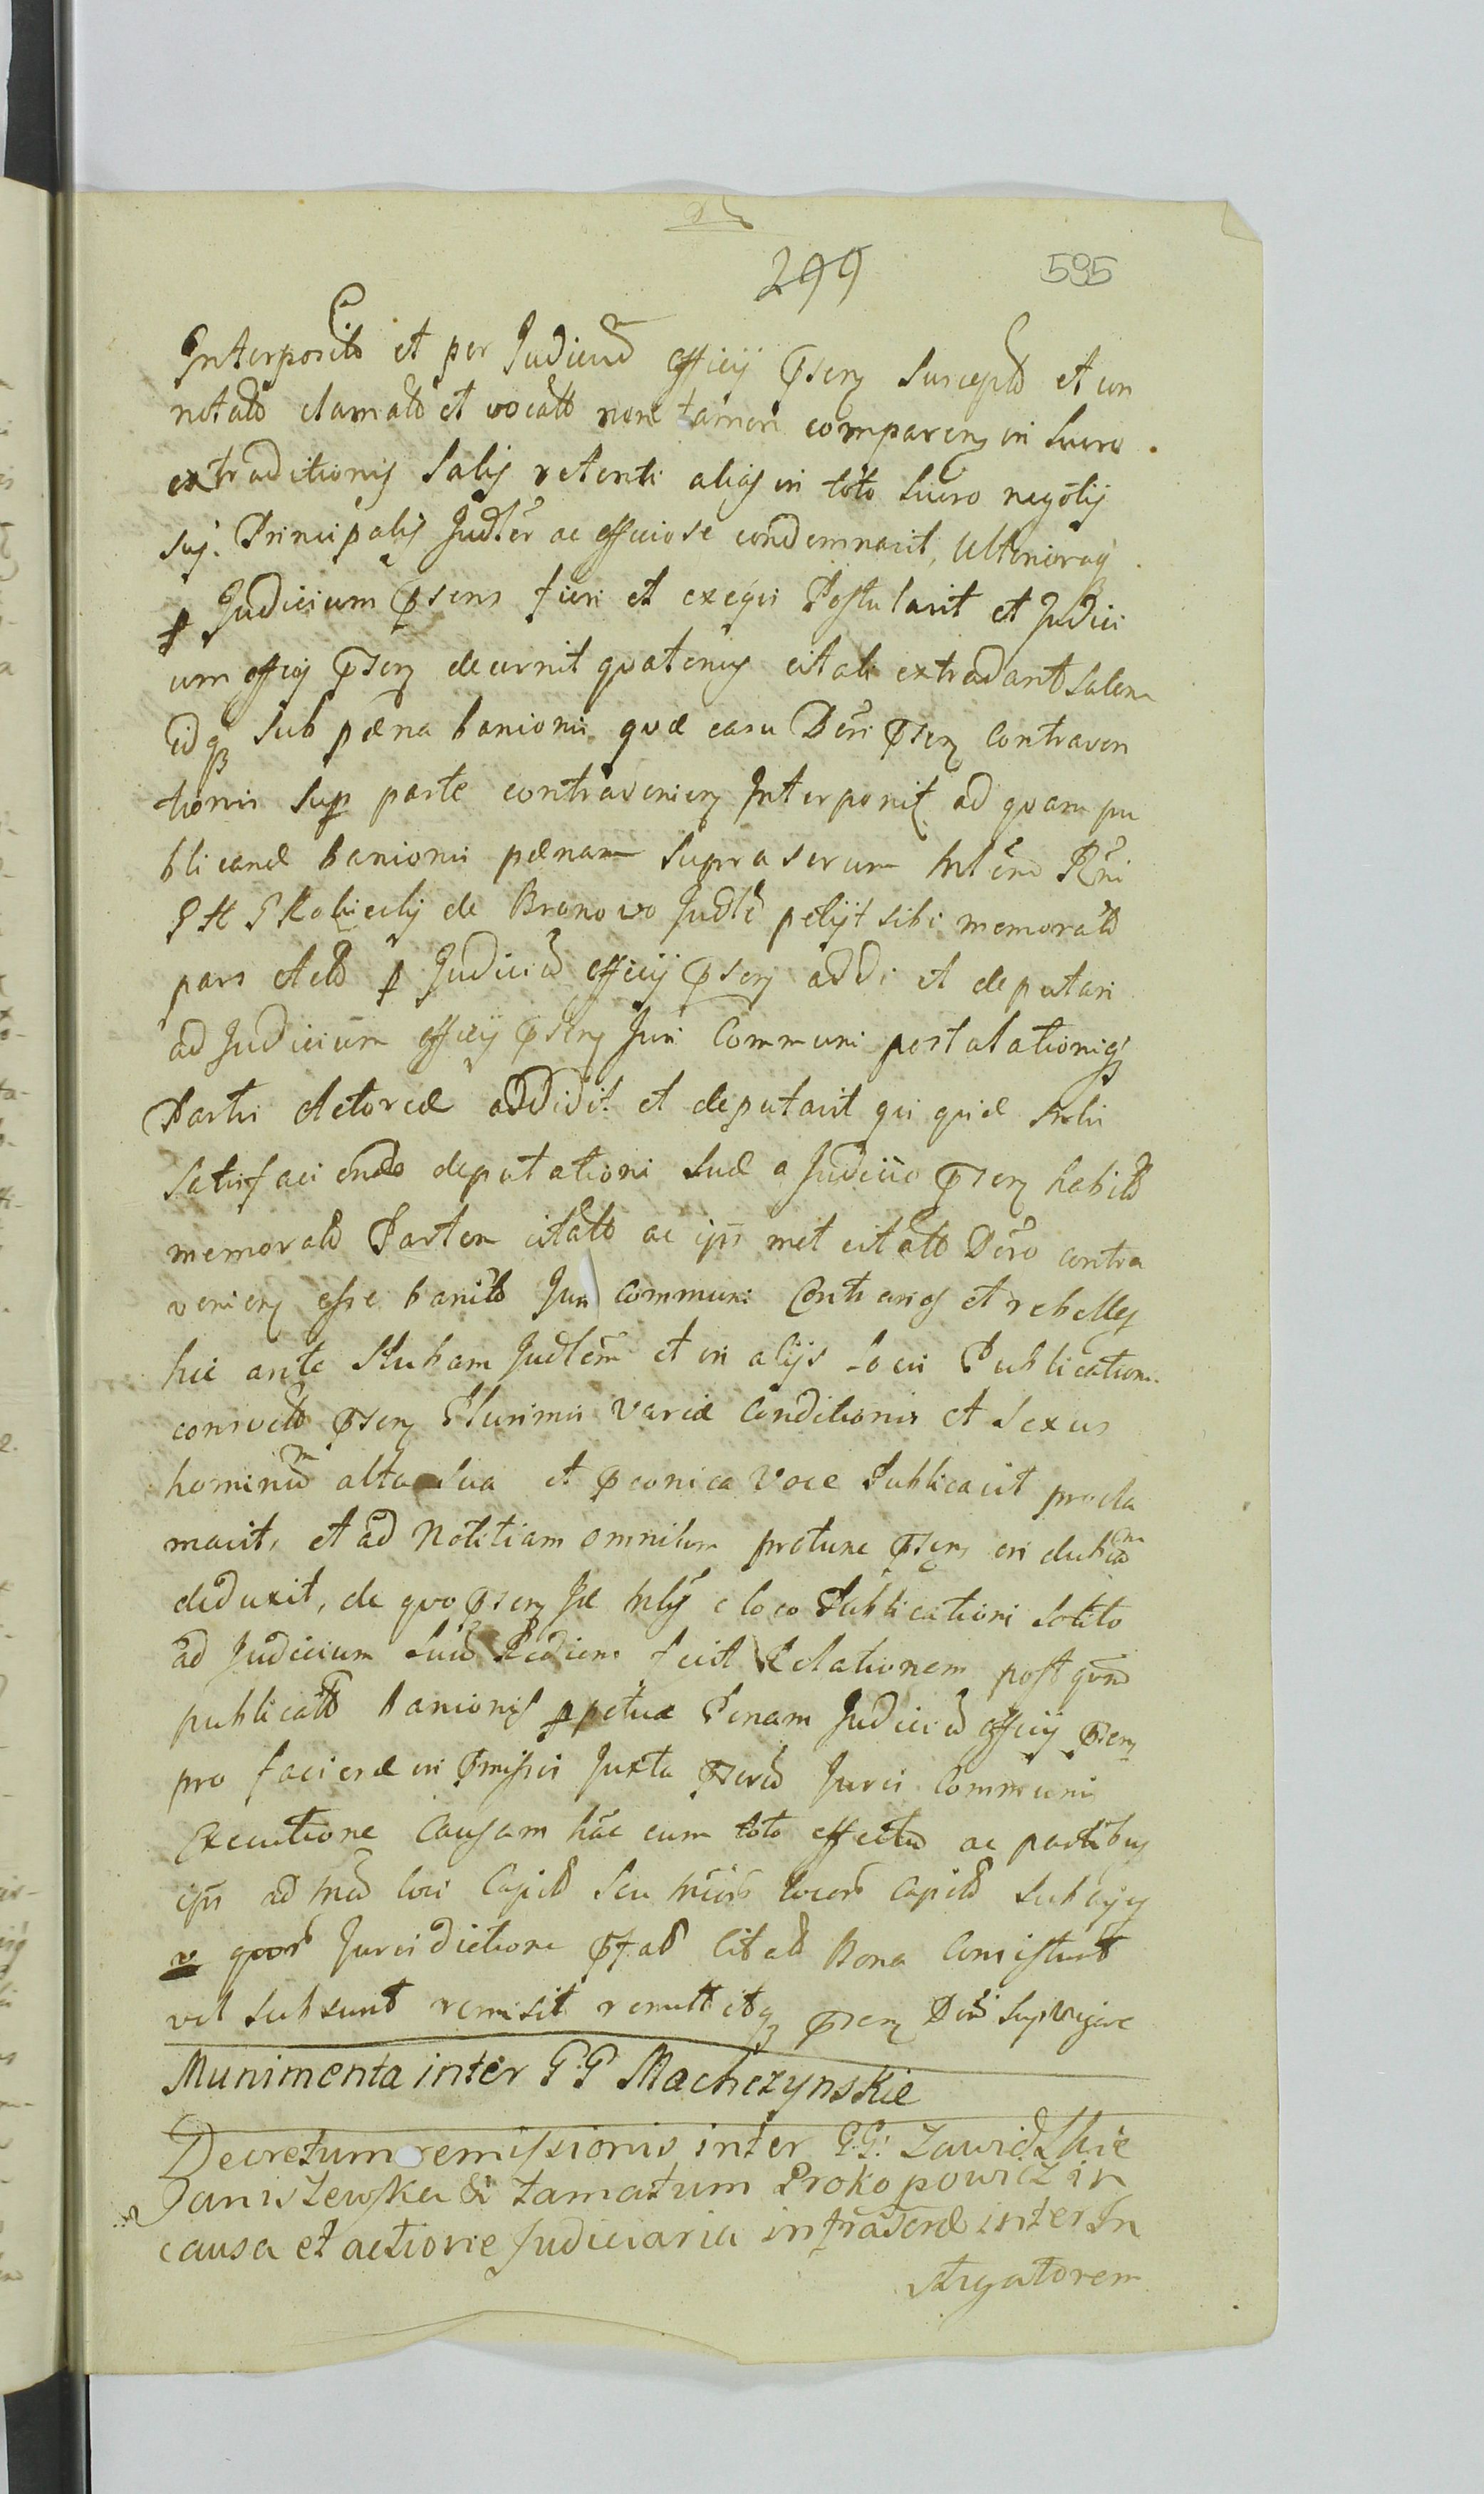 299 595
Interposito et per Judiciu officij psens Suscepto et con
notato clamato et vocato non tamen comparens in lucro
extraditionis Salis retenti alias in toto lucro negotij
sui Principalis Judler ac officiose condemnavit, Ulterioraq
p Judicium psens fieri et exequi Postulavit et Judici
um officij psens decernit quatenus citati extradant Salem
idq sub pæna banionis quæ casu Dcri psens Contraven
tionis Sup parte contraveniens Interponit ad quam pu
blicand banionis pænam suprascrum Mlem Rni
de Branowo Judle petijt sibi memorato
pars Acto p Judiciu officij psens addi et deputari
ad Judicium officij psens Juri Communi postulationiq
Partis Actoreæ addidit et deputavit qui quid Mlis
Satisfaciendo deputationi suæ a Judicio psens habito
memorato Partem citato ac ips met citato Dcro contra
veniens esse banito Juri communi Contrarios et rebelles
hic ante Stubam Judlem et in alijs locis Publication
consueto psens Plurimis Variæ Conditionis et Sexus
hominu alta sua et pconica Voce Publicavit procla
mavit, et ad Notitiam omnium protunc psens in dubiam
deduxit, de quo psens Mlis e loco Publicationi Solito
ad Judicium suu Rediens fecit Relationem post quam
publicato banionis ppetuæ Penam Judiciu officij psens
pro faciend in pmissis Juxta pscru Juris Communis
Executione Causam hac cum toto effectu ac partibus
ips ad loci Capit seu locor Capit Subcujus
v quor Jurisdictione pfat Citat Bona Consistunt
vel subsunt remisit remittitq psens Dcri Sup Vigore
Munimenta inter G G Machczynskie
Decretum remissionis inter G.G. Zawidzkie
Janiszewska & famatum Prokopowicz in
causa et actione Judiciaria infrascrd inter In
stigatorem